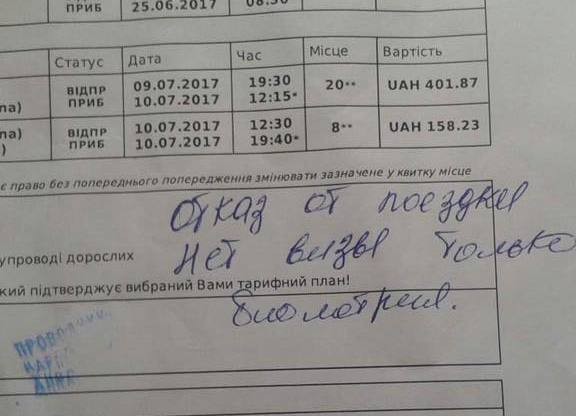 ПРИБ 25.06.2017
Статус Дата Час Місце Вартість
ВІДПР 09.07.2017 19:30 20** UAH 401.87
па) ПРИБ 10.07.2017 12:15*
па) ВІДПР 10.07.2017 12:30 8** UAH 158.23
) ПРИБ 10.07.2017 19:40*
є право без попереднього попередження змінювати зазначене у квитку місце
отказ от поездки
упроводі дорослих
Нет визы только
кий підтверджує вибраний Вами тарифний план!
биометрия.